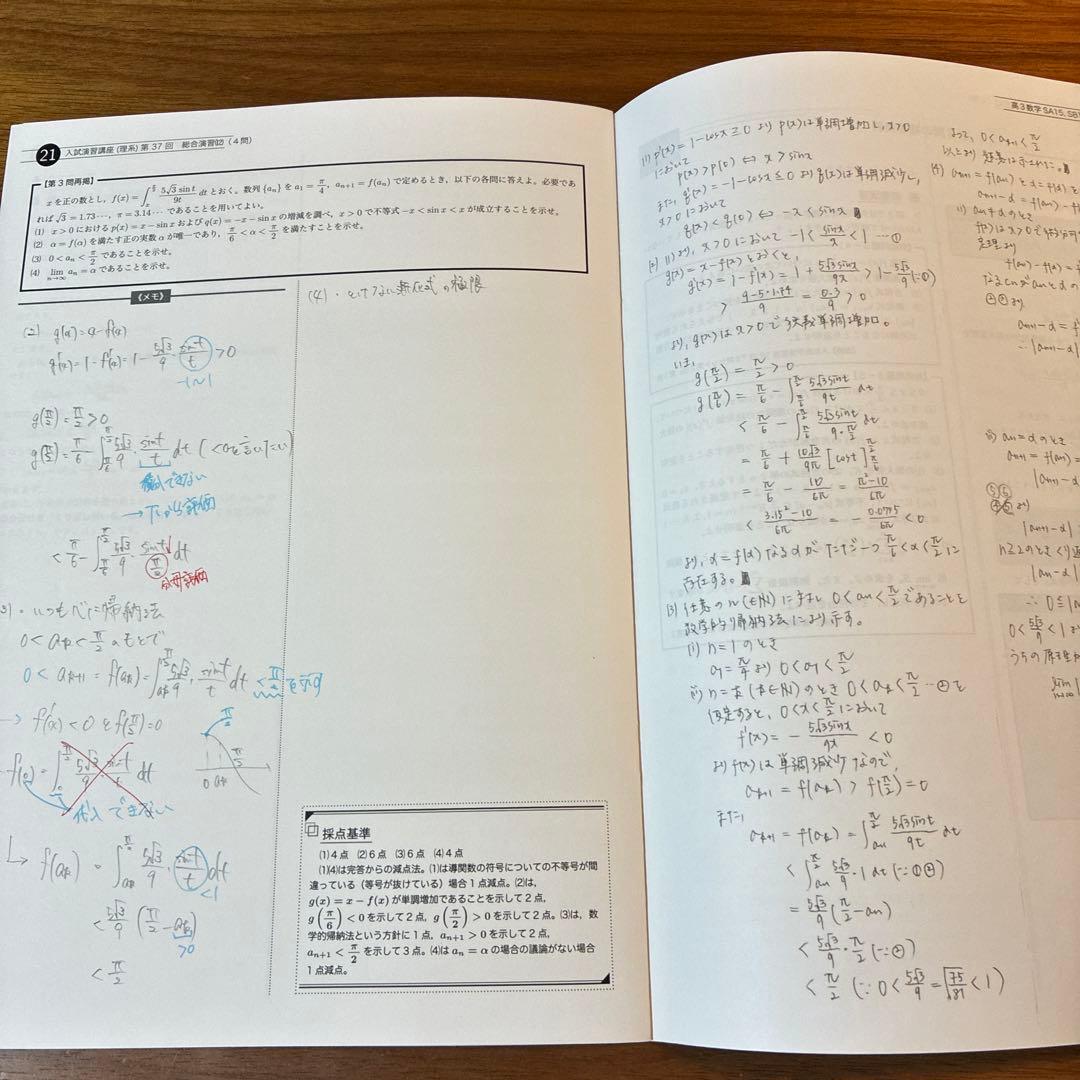 21 入試演習講座(理系)第37回 総合演習⑫(4問)
【第3問再掲】
xを正の数とし,f(x)=∫_x^{π/2} 5√3 sin t/9t dtとおく。数列{a_n}をa_1=π/4,a_{n+1}=f(a_n)で定めるとき,以下の各問に答えよ。必要であ
れば√3=1.73…,π=3.14…であることを用いてよい。
(1) x>0におけるp(x)=x−sin xおよびq(x)=−x−sin xの増減を調べ,x>0で不等式−x<sin x<xが成立することを示せ。
(2) α=f(α)を満たす正の実数αが唯一であり,π/6<α<π/2を満たすことを示せ。
(3) 0<a_n<π/2であることを示せ。
(4) lim_{n→∞} a_n=αであることを示せ。
《メモ》
(2) g(α)=α−f(α)
g'(α)=1−f'(α)=1−5√3/9・sin t/t>0
−1〜1
g(π/2)=π/2>0
g(π/6)=π/6−∫_{π/6}^{π/2} 5√3/9・sin t/t dt (<0を言いたい)
積分できない
→下から評価
<π/6−∫_{π/6}^{π/2} 5√3/9・sin t/(π/2) dt
分母評価
(3)・いつもベに帰納法
0<a_k<π/2のもとで
0<a_{k+1}=f(a_k)=∫_{a_k}^{π/2} 5√3/9・sin t/t dt<π/2を示す
→f'(x)<0とf(π/2)=0
π/2
0 a_k π/2
f(0)=∫_0^{π/2} 5√3/9・sin t/t dt
代入できない
f(a_k)=∫_{a_k}^{π/2} 5√3/9・sin t/t dt
<1
<5√3/9(π/2−a_k)
>0
<π/2
(4)・とけない漸化式の極限
採点基準
(1)4点 (2)6点 (3)6点 (4)4点
(1)(4)は完答からの減点法。(1)は導関数の符号についての不等号が間
違っている(等号が抜けている)場合1点減点。(2)は,
g(x)=x−f(x)が単調増加であることを示して2点,
g(π/6)<0を示して2点,g(π/2)>0を示して2点。(3)は,数
学的帰納法という方針に1点,a_{n+1}>0を示して2点,
a_{n+1}<π/2を示して3点。(4)はa_n=αの場合の議論がない場合
1点減点。
(1) p'(x)=1−cos x≧0よりp(x)は単調増加し,x>0
において
p(x)>p(0)⇔x>sin x
また,q'(x)=−1−cos x≦0よりq(x)は単調減少し,
x>0において
q(x)<q(0)⇔−x<sin x
(2) (1)より,x>0において−1<sin x/x<1 …①
g(x)=x−f(x)とおくと,
g'(x)=1−f'(x)=1+5√3 sin x/9x>1−5√3/9(∵①)
>9−5・1.74/9=0.3/9>0
より,g(x)はx>0で狭義単調増加。
いま,
g(π/2)=π/2>0
g(π/6)=π/6−∫_{π/6}^{π/2} 5√3 sin t/9t dt
<π/6−∫_{π/6}^{π/2} 5√3 sin t/(9・π/2) dt
=π/6+10√3/9π[cos t]_{π/6}^{π/2}
=π/6−10/6π=π²−10/6π
<3.15²−10/6π=−0.0775/6π<0
より,α=f(α)なるαがただ一つπ/6<α<π/2に
存在する。
(3) 任意のn(∈N)に対し0<a_n<π/2であることを
数学的帰納法により示す。
(i) n=1のとき
a_1=π/4より0<a_1<π/2
(ii) n=k(k∈N)のとき0<a_k<π/2 …②を
仮定すると,0<x<π/2において
f'(x)=−5√3 sin x/9x<0
よりf(x)は単調減少なので,
a_{k+1}=f(a_k)>f(π/2)=0
また,
a_{k+1}=f(a_k)=∫_{a_k}^{π/2} 5√3 sin t/9t dt
<∫_{a_n}^{π/2} 5√3/9・1dt(∵①②)
=5√3/9(π/2−a_n)
<5√3/9・π/2(∵②)
<π/2(∵0<5√3/9=√75/81<1)
高3数学SA15,SB1
よって,0<a_{k+1}<π/2
以上より題意は示された。
(4) a_{n+1}=f(a_n)とα=f(α)
a_{n+1}−α=f(a_n)−f
(i) a_n≠αのとき
f(x)はx>0で
定理より
f(a_n)−f(α)=f
なるc_nがa_nとαの
より
a_{n+1}−α=f
∴|a_{n+1}−α|
(ii) a_n=αのとき
a_{n+1}=f(a_n)=
|a_{n+1}−α|
⑤⑥より
|a_{n+1}−α|
n≧2のときくり返
|a_n−α|
∴0≦|a
0<5√3/9<1より
うちの原理
lim_{n→∞}|